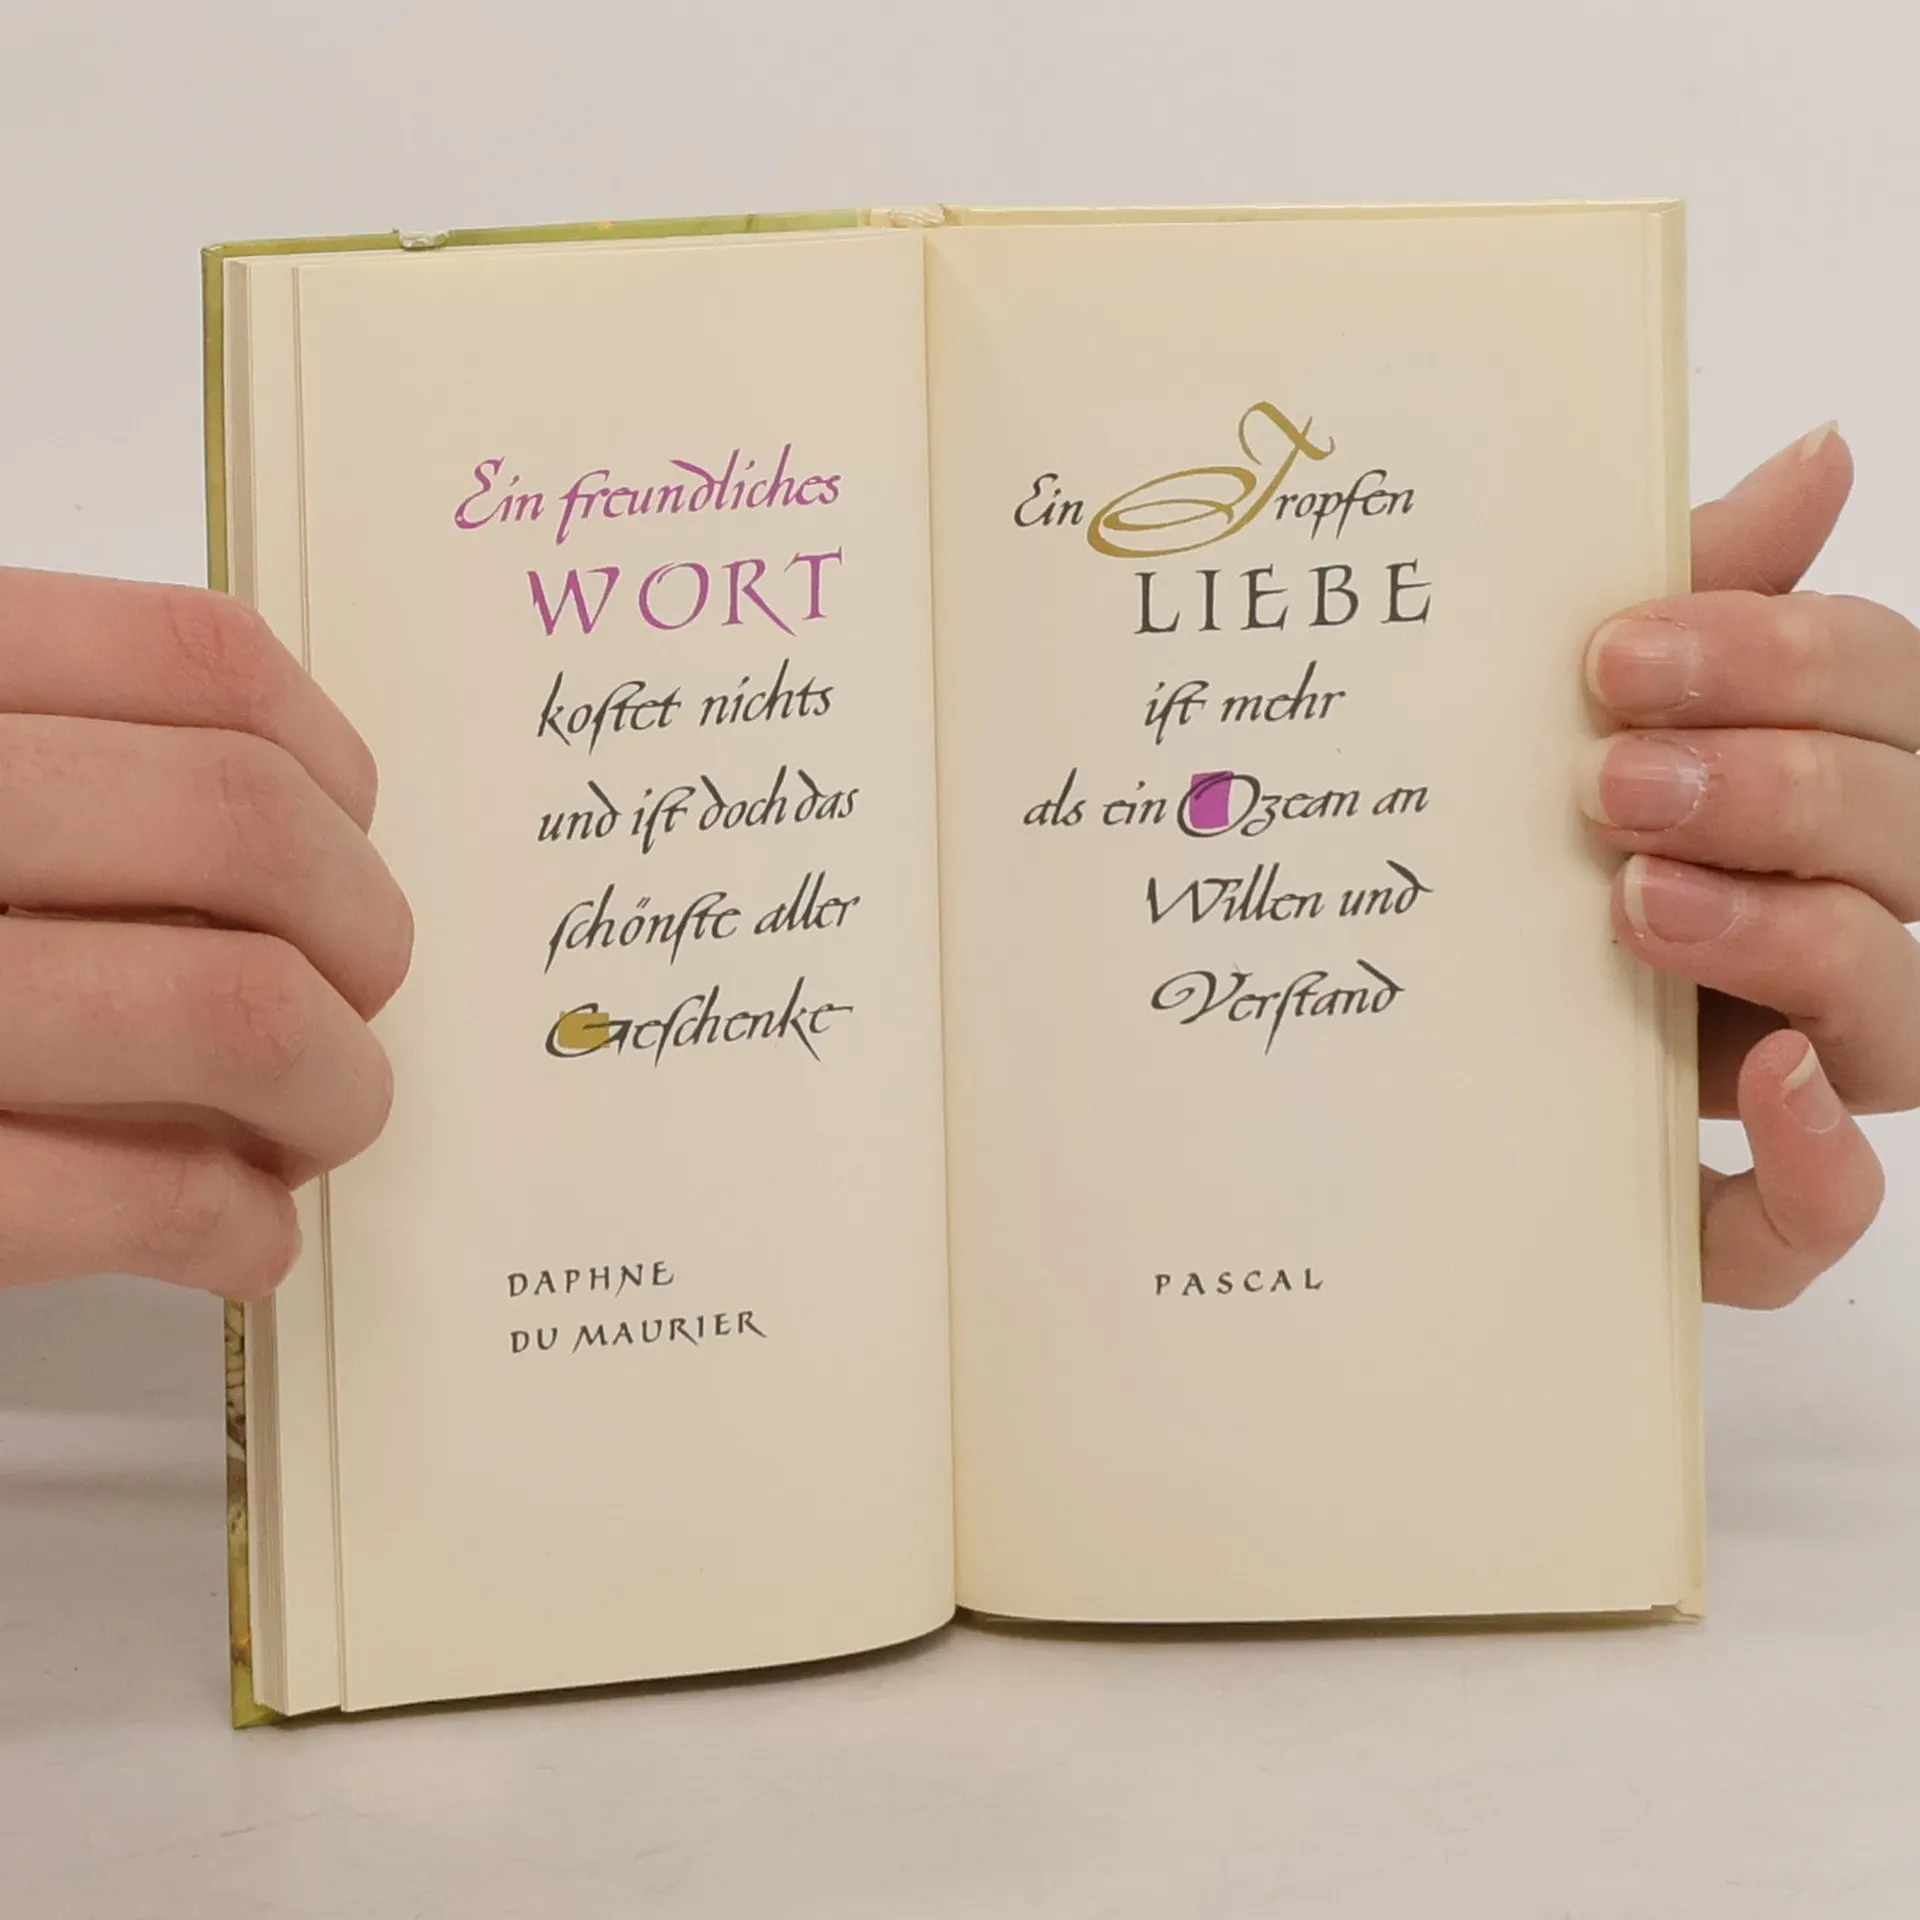 Ein freundliches
WORT
kostet nichts
und ist doch das
schönste aller
Geschenke
DAPHNE
DU MAURIER
Ein Tropfen
LIEBE
ist mehr
als ein Ozean an
Willen und
Verstand
PASCAL